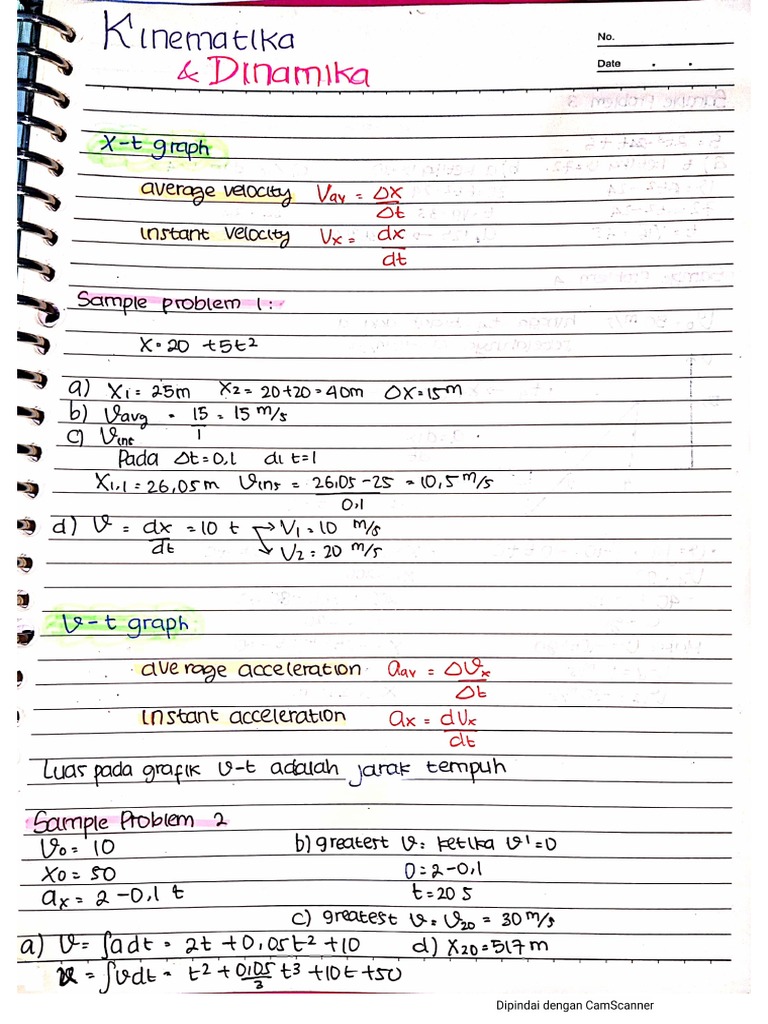 Kinematika
& Dinamika
No.
Date . .
x-t graph
average velocity Vav = Δx/Δt
instant velocity Vx = dx/dt
Sample problem 1:
x = 20 + 5t²
a) x1 = 25m x2 = 20+20 = 40m Δx = 15m
b) Vavg = 15/1 = 15 m/s
c) Vins
Pada Δt = 0,1 di t = 1
x1,1 = 26,05 m Vins = 26,05 - 25/0,1 = 10,5 m/s
d) V = dx/dt = 10 t → V1 = 10 m/s
↘ V2 = 20 m/s
v-t graph
average acceleration aav = ΔVx/Δt
instant acceleration ax = dVx/dt
Luas pada grafik v-t adalah jarak tempuh
Sample Problem 2
V0 = 10
x0 = 50
ax = 2 - 0,1 t
b) greatest v: ketika v' = 0
0 = 2 - 0,1
t = 20 s
c) greatest v = V20 = 30 m/s
a) V = ∫a dt = 2t + 0,05t² + 10
d) x20 = 517 m
x = ∫vdt = t² + 0,05/3 t³ + 10t + 50
Dipindai dengan CamScanner